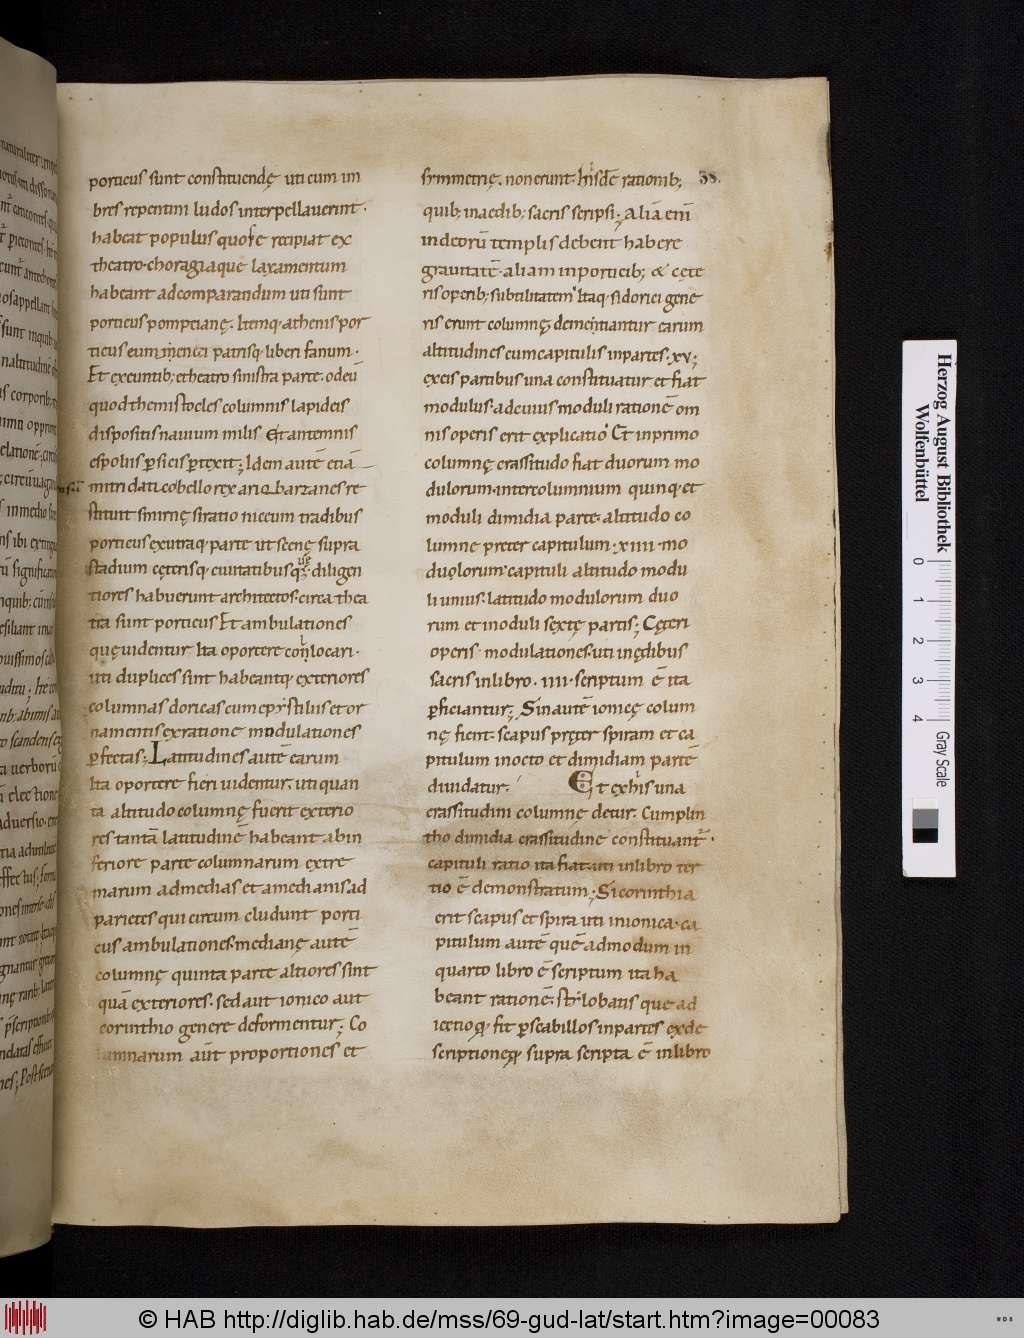 porticus sunt constituendę uti cum im
bres repentini ludos interpellauerint.
habeat populus quo se recipiat ex
theatro. choragiaque laxamentum
habeant ad comparandum uti sunt
porticus pompeianę. Itemq. athenis por
ticus patrisq. liberi fanum.
Et exeuntib; e theatro sinistra parte. odeū
quod themistocles columnis lapideis
dispositis nauium milis Et antemnis
espoliis ꝑsicis ꝑtexit; Idem autē etiā
mitridatico bello rex ariobarzanes re
stituit smirnę stratoniceum tradibus
porticus ex utraq. parte ut scenę supra
stadium cęterisq. ciuitatibus diligen
tiores habuerunt architectos. circa thea
tra sunt porticus Et ambulationes
quę uidentur Ita oportere conlocari.
uti duplices sint habeantq. exteriores
columnas doricas cum epystiliis et or
namentis ex ratione modulationes
ꝑfectas; Latitudines autē earum
Ita oportere fieri uidentur. uti quan
ta altitudo columnę fuerit exterio
res tantā latitudinē habeant ab in
feriore parte columnarum extre
marum ad medias et a medianis. ad
parietes qui circum cludunt porti
cus ambulationes. medianę autē
columnę quinta parte altiores sint
quā exteriores. sed aut ionico aut
corinthio genere deformentur; Co
lumnarum aūt proportiones et
symmetrię. non erunt. rationib; 38.
quib; in aedib; sacris scripsi; Aliā enī
in deorū templis debent habere
grauitatē. aliam in porticib; & cęte
ris operib; subtilitatem. Itaq. si dorici gene
ris erunt columnę. dementiantur earum
altitudines cum capitulis in partes. xv;
ex eis partibus una constituatur et fiat
modulus. ad cuius moduli rationē om
nis operis erit explicatio. Et in primo
columnę crassitudo fiat duorum mo
dulorum. intercolumnium quinq. et
moduli dimidia parte. altitudo co
lumne pręter capitulum. xiiii. mo
duolorum. capituli altitudo modu
li unius. latitudo modulorum duo
rum et moduli sextę partis; Cęteri
operis. modulationes. uti in ędibus
sacris in libro. iiii. scriptum ē ita
ꝑficiantur; Sin autē ionicę colum
nę fient. scapus pręter spiram et ca
pitulum in octo et dimidiam partē
diuidatur; Et ex his una
crassitudini columnę detur. Cum plin
tho dimidia crassitudine constituant᷑.
capituli ratio ita fiat. uti in libro ter
tio ē demonstratum; Si corinthia
erit scapus et spira uti in ionica. ca
pitulum autē quē admodum in
quarto libro ē scriptum ita ha
beant rationē. stilobatis que ad
iectioq. fit ꝑ scabillos in partes ex de
scriptioneq. supra scripta ē in libro
Herzog August Bibliothek
Wolfenbüttel
0 1 2 3 4 Gray Scale
© HAB http://diglib.hab.de/mss/69-gud-lat/start.htm?image=00083